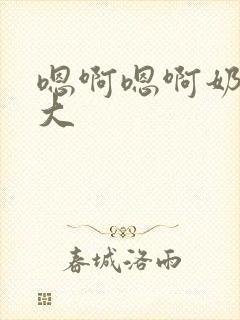 嗯啊嗯啊奶
大
春城洛雨